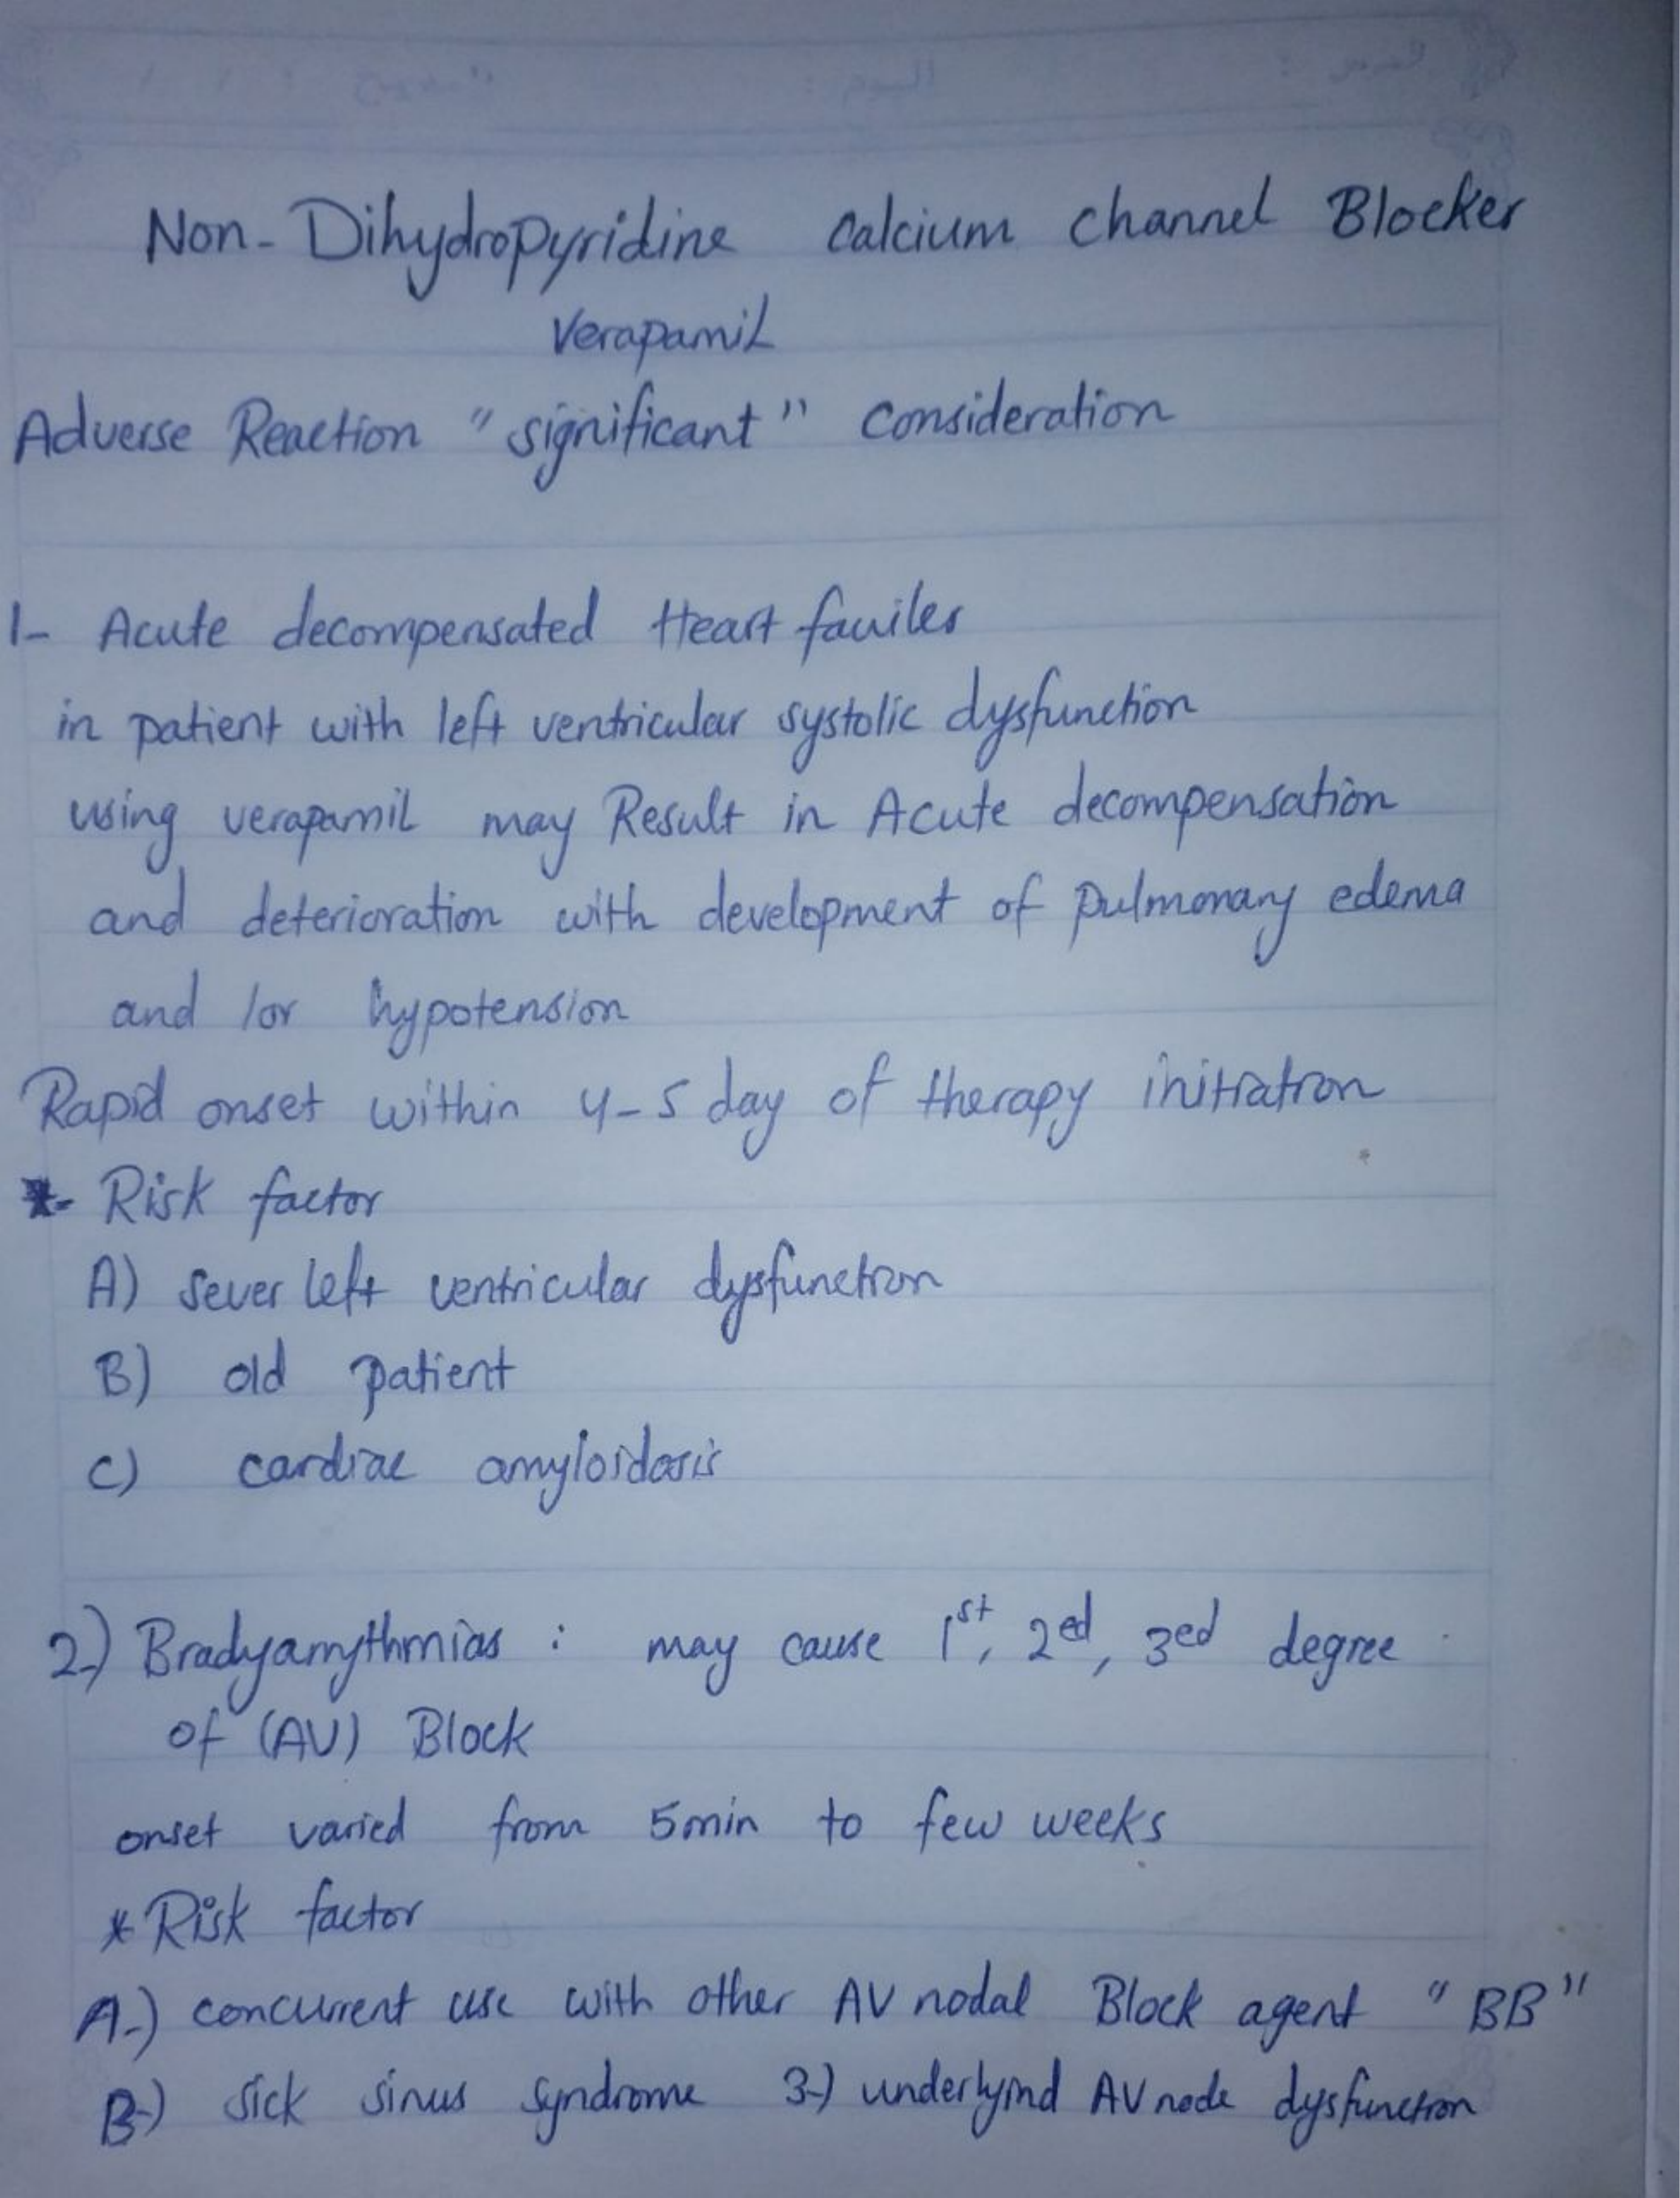 Non-Dihydropyridine calcium channel Blocker
Verapamil
Adverse Reaction "significant" consideration
1- Acute decompensated Heart fauiler
in patient with left ventricular systolic dysfunction
using verapamil may Result in Acute decompensation
and deterioration with development of pulmonary edema
and /or hypotension
Rapid onset within 4-5 day of therapy initiation
*- Risk factor
A) sever left ventricular dysfunction
B) old patient
C) cardiac amyloidosis
2-) Bradyarrythmias : may cause 1st, 2ed, 3ed degree
of (AV) Block
onset varied from 5min to few weeks
* Risk factor
A-) concurrent use with other AV nodal Block agent "BB"
B-) sick sinus syndrome 3-) underlyind AV node dysfunction